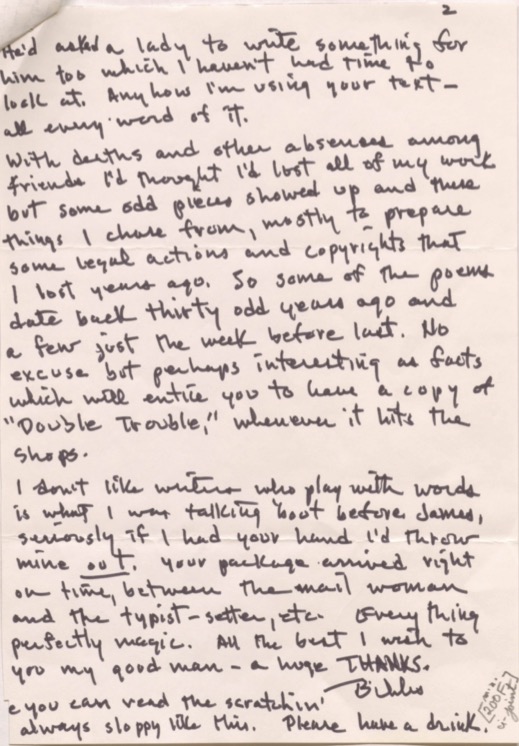 2
He'd asked a lady to write something for
him too which I haven't had time to
look at. Anyhow I'm using your text—
all every word of it.
With deaths and other absenses among
friends I'd thought I'd lost all of my work
but some odd pieces showed up and these
things I chose from, mostly to prepare
some legal actions and copyrights that
I lost years ago. So some of the poems
date back thirty odd years ago and
a few just the week before last. No
excuse but perhaps interesting as facts
which will entice you to have a copy of
"Double Trouble," whenever it hits the
shops.
I don't like writers who play with words
is what I was talking 'bout before James,
seriously if I had your hand I'd throw
mine out. Your package arrived right
on time, between the mail woman
and the typist-setter, etc. Everything
perfectly magic. All the best I wish to
you my good man – a huge THANKS.
e you can read the scratchin'
always sloppy like this. Please have a drink.